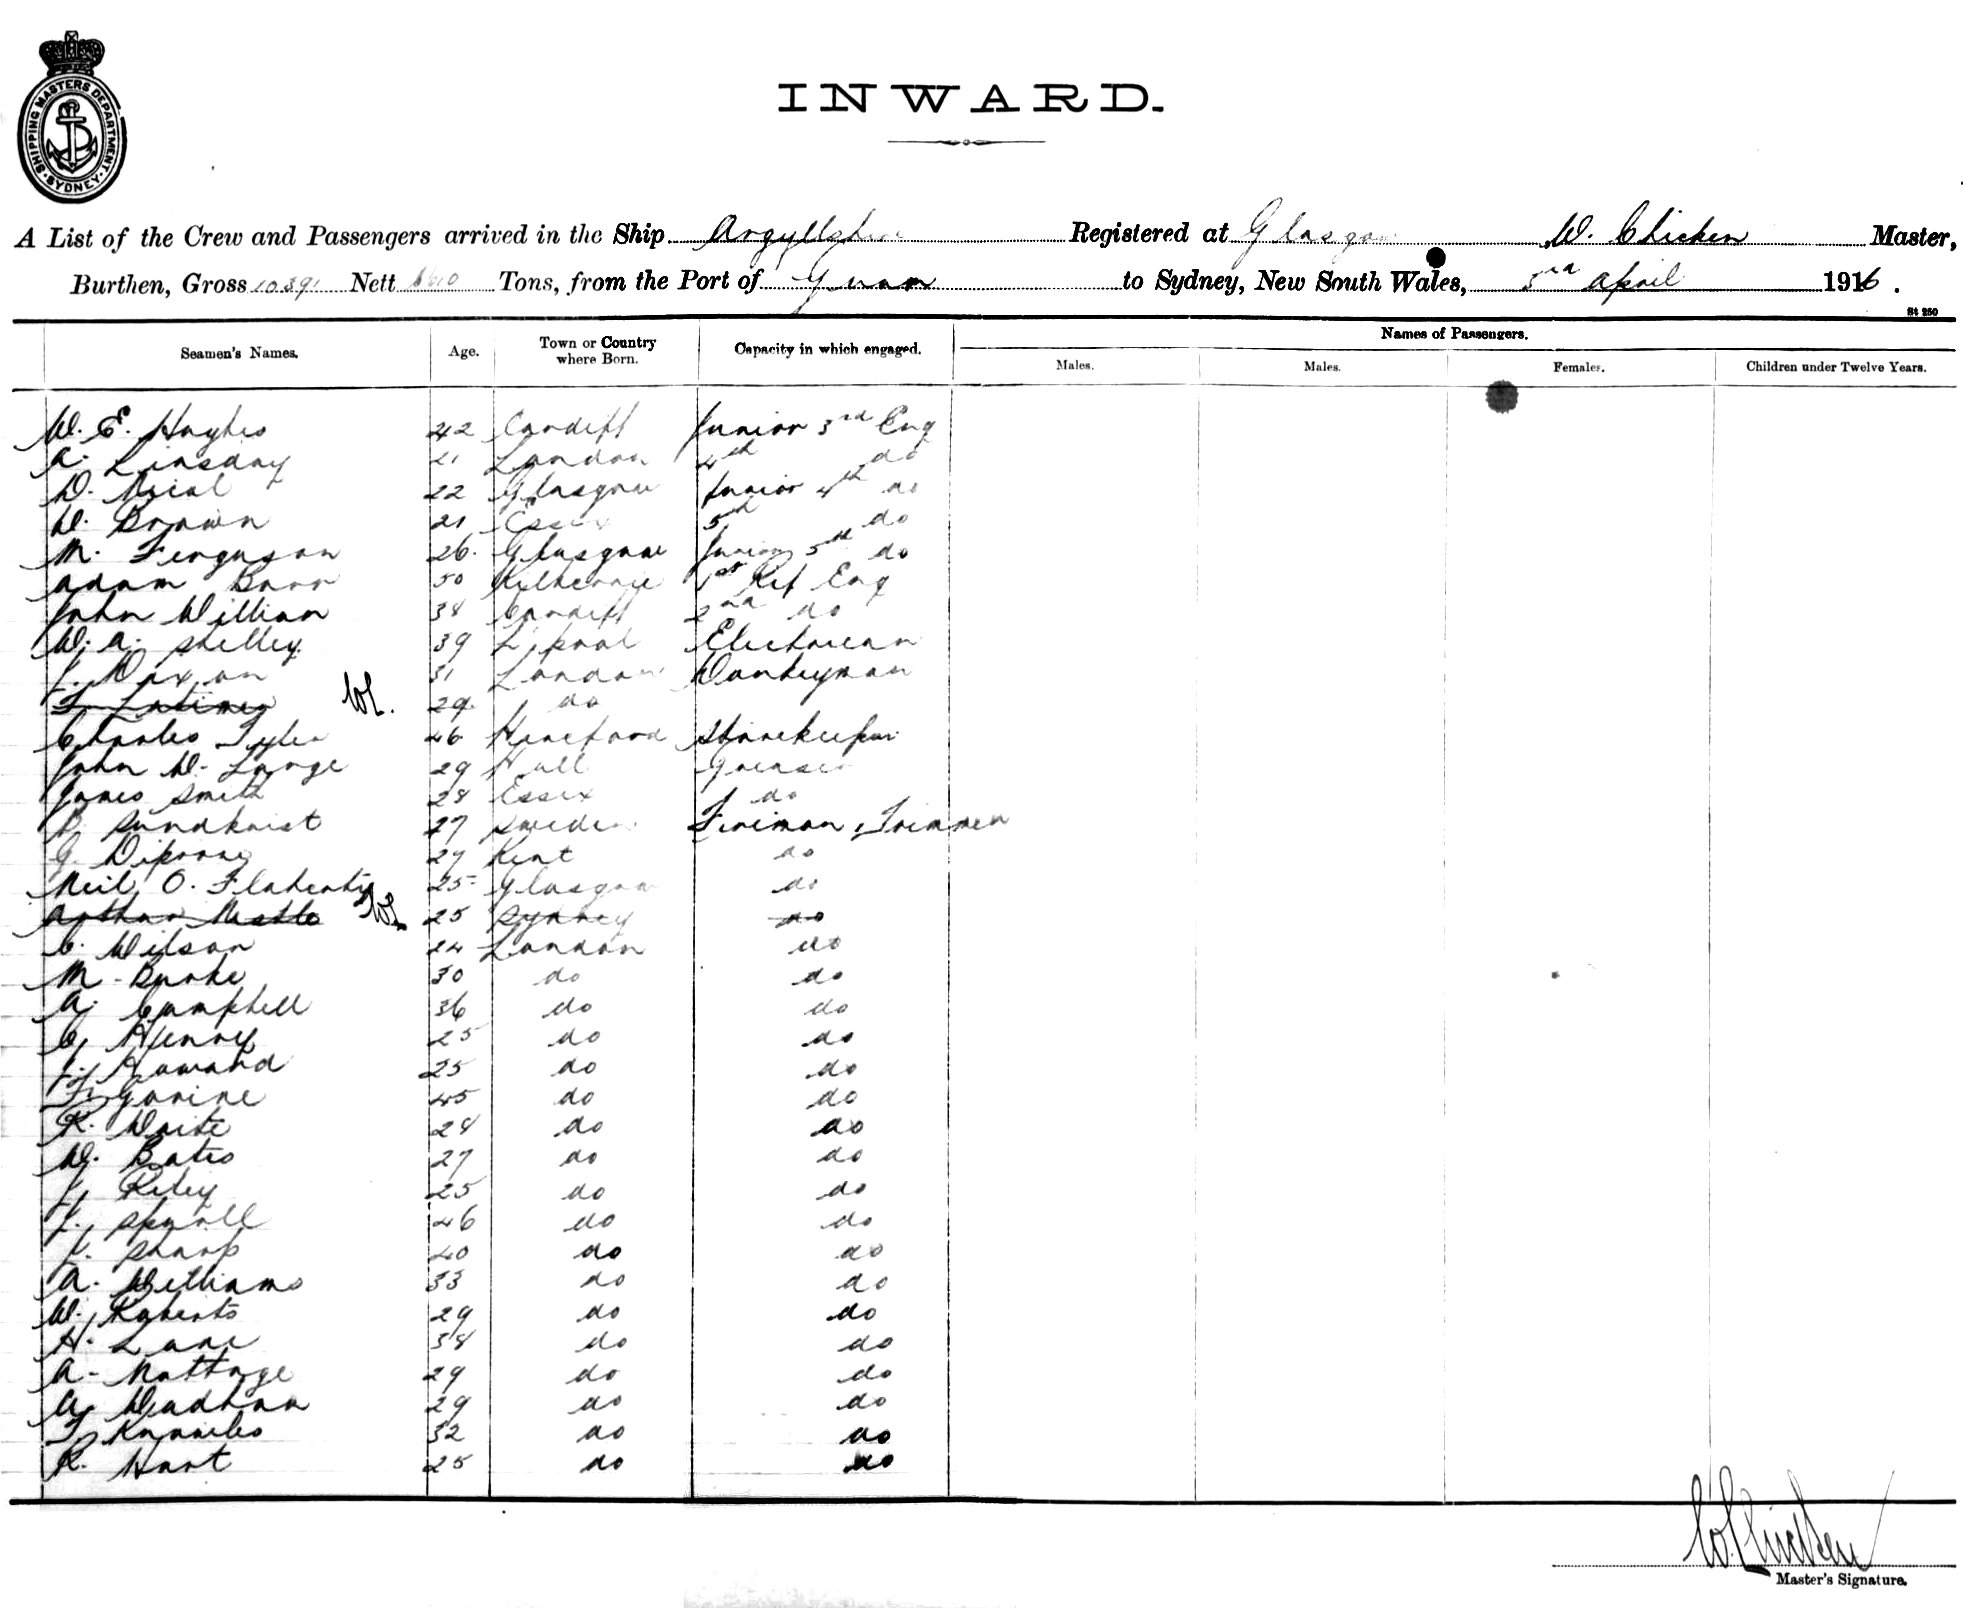 SHIPPING MASTERS DEPARTMENT. SYDNEY.
INWARD.
A List of the Crew and Passengers arrived in the Ship Argyllshire Registered at Glasgow W. Chicken Master,
Burthen, Gross 10391 Nett Tons, from the Port of to Sydney, New South Wales, 3rd April 1916.
St 250
Seamen's Names. Age. Town or Country where Born. Capacity in which engaged. Names of Passengers.
Males. Males. Females. Children under Twelve Years.
W. E. Hughes 42 Cardiff Junior 3rd Eng
A. Linsday 21 London 4th do
D. 22 Glasgow Junior 4th do
W. Brown 21 Essex 5th do
M. Ferguson 26 Glasgow Junior 5th do
Adam Barr 50 Kilbernie 1st Ref Eng
John Willian 38 Cardiff 2nd do
W. A. Shelley 39 L'pool Electrician
J. 31 London Donkeyman
F Latimer W.C. 29 do
Charles Tyler 46 Hereford Storekeeper
John W. Large 29 Hull Greaser
James Smith 28 Essex do
Sundkuist 27 Sweden Fireman, Trimmer
G. Diprose 27 Kent do
Neil O. Flaherty 25 Glasgow do
Arthur W.C. 25 Sydney do
C. Wilson 24 London do
M. Burke 30 do do
A. Campbell 36 do do
C. Henry 25 do do
J. Howard 25 do do
F. 45 do do
R. Waite 28 do do
W. Bates 27 do do
J. Riley 25 do do
J. 46 do do
J. Sharp 40 do do
A. Williams 33 do do
W. Roberts 29 do do
H. Lane 38 do do
A. Nottage 29 do do
29 do do
F. Knowles 32 do do
R. Hart 25 do do
W. Chicken
Master's Signature.